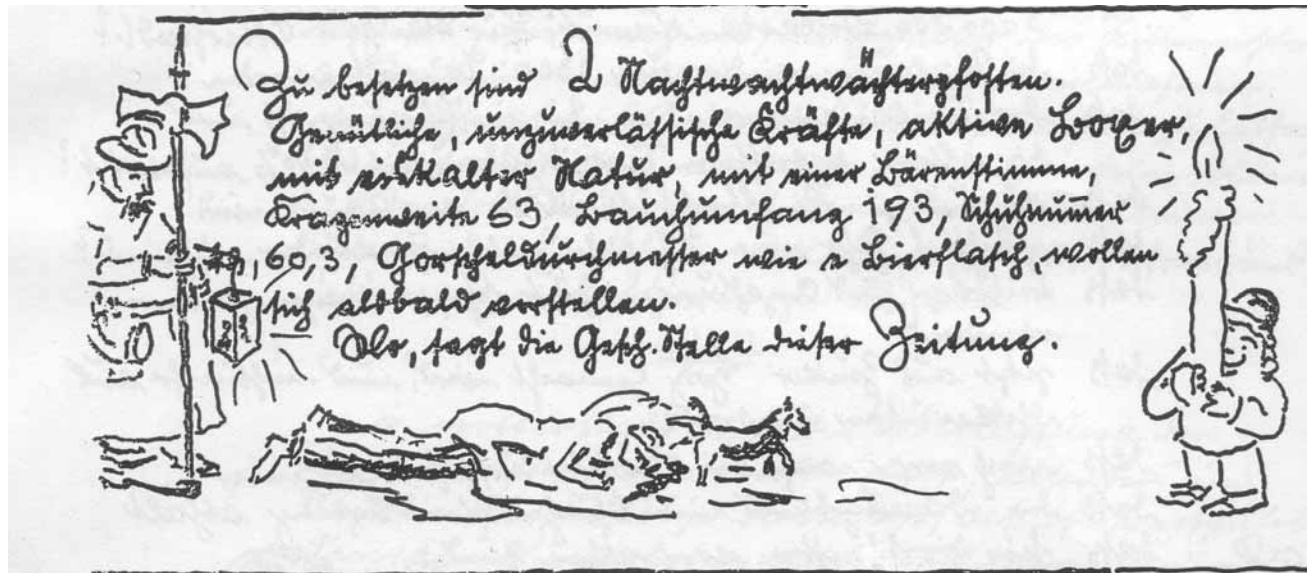 Zu besetzen sind 2 Nachtwachtwächterpfosten.
Gemütliche, unzuverlässische Kräfte, aktive Boxer,
mit eiskalter Natur, mit einer Bärenstimme,
Kragenweite 63, Bauchumfang 193, Schuhnummer
60,3, Gorscheldurchmesser wie e Bierflasch, wollen
sich alsbald vorstellen.
Wo, sagt die Gesch. Stelle dieser Zeitung.